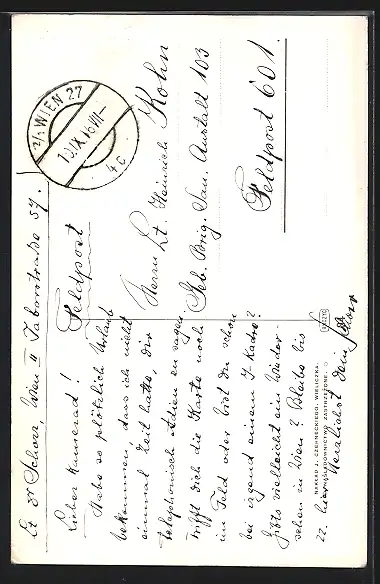 Lt Dr Schorr, Wien II Taborstraße 59.
Feldpost
2/1 WIEN 27
10.IX.16 VII
4c
Herrn Lt. Heinrich Kohn
Geb. Brig. San. Anstalt 103
Feldpost 601.
Lieber Kamerad!
Habe so plötzlich Urlaub
bekommen, dass ich nicht
einmal Zeit hatte, dir
telephonisch Adieu zu sagen.
Trifft dich die Karte noch
im Feld oder bist du schon
bei irgend einem Kadre?
Gibts vielleicht ein Wieder-
sehen in Wien? Bleibe bis
22. hier.
Herzlichst Dein Schorr
NAKŁAD J. CZERNECKIEGO, WIELICZKA.
NAŚLADOWNICTWO ZASTRZEŻONE.